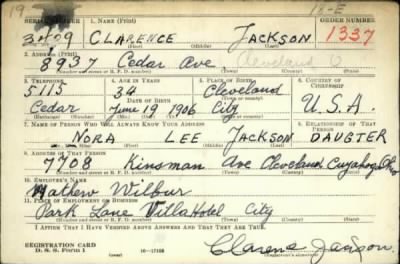 SERIAL NUMBER 1. NAME (Print) ORDER NUMBER
3209 CLARENCE JACKSON 1337
(First) (Middle) (Last)
2. ADDRESS (Print)
8937 Cedar Ave Cleveland O
(Number and street or R. F. D. number) (Town) (County) (State)
3. TELEPHONE 4. AGE IN YEARS 5. PLACE OF BIRTH 6. COUNTRY OF CITIZENSHIP
5115 34 Cleveland
DATE OF BIRTH (Town or county)
Cedar June 19 1906 City U.S.A.
7. NAME OF PERSON WHO WILL ALWAYS KNOW YOUR ADDRESS 8. RELATIONSHIP OF THAT PERSON
NORA LEE JACKSON DAUGTER
(First) (Middle) (Last)
9. ADDRESS OF THAT PERSON
7708 Kinsman Ave Cleveland Cuyahoga Ohio
(Number and street or R. F. D. number) (Town) (County) (State)
10. EMPLOYER'S NAME
Mathew Wilbur
11. PLACE OF EMPLOYMENT OR BUSINESS
Park Lane Villa Hotel City
(Number and street or R. F. D. number) (Town) (County) (State)
I AFFIRM THAT I HAVE VERIFIED ABOVE ANSWERS AND THAT THEY ARE TRUE.
REGISTRATION CARD
D. S. S. Form 1 16-17105 Clarence Jackson